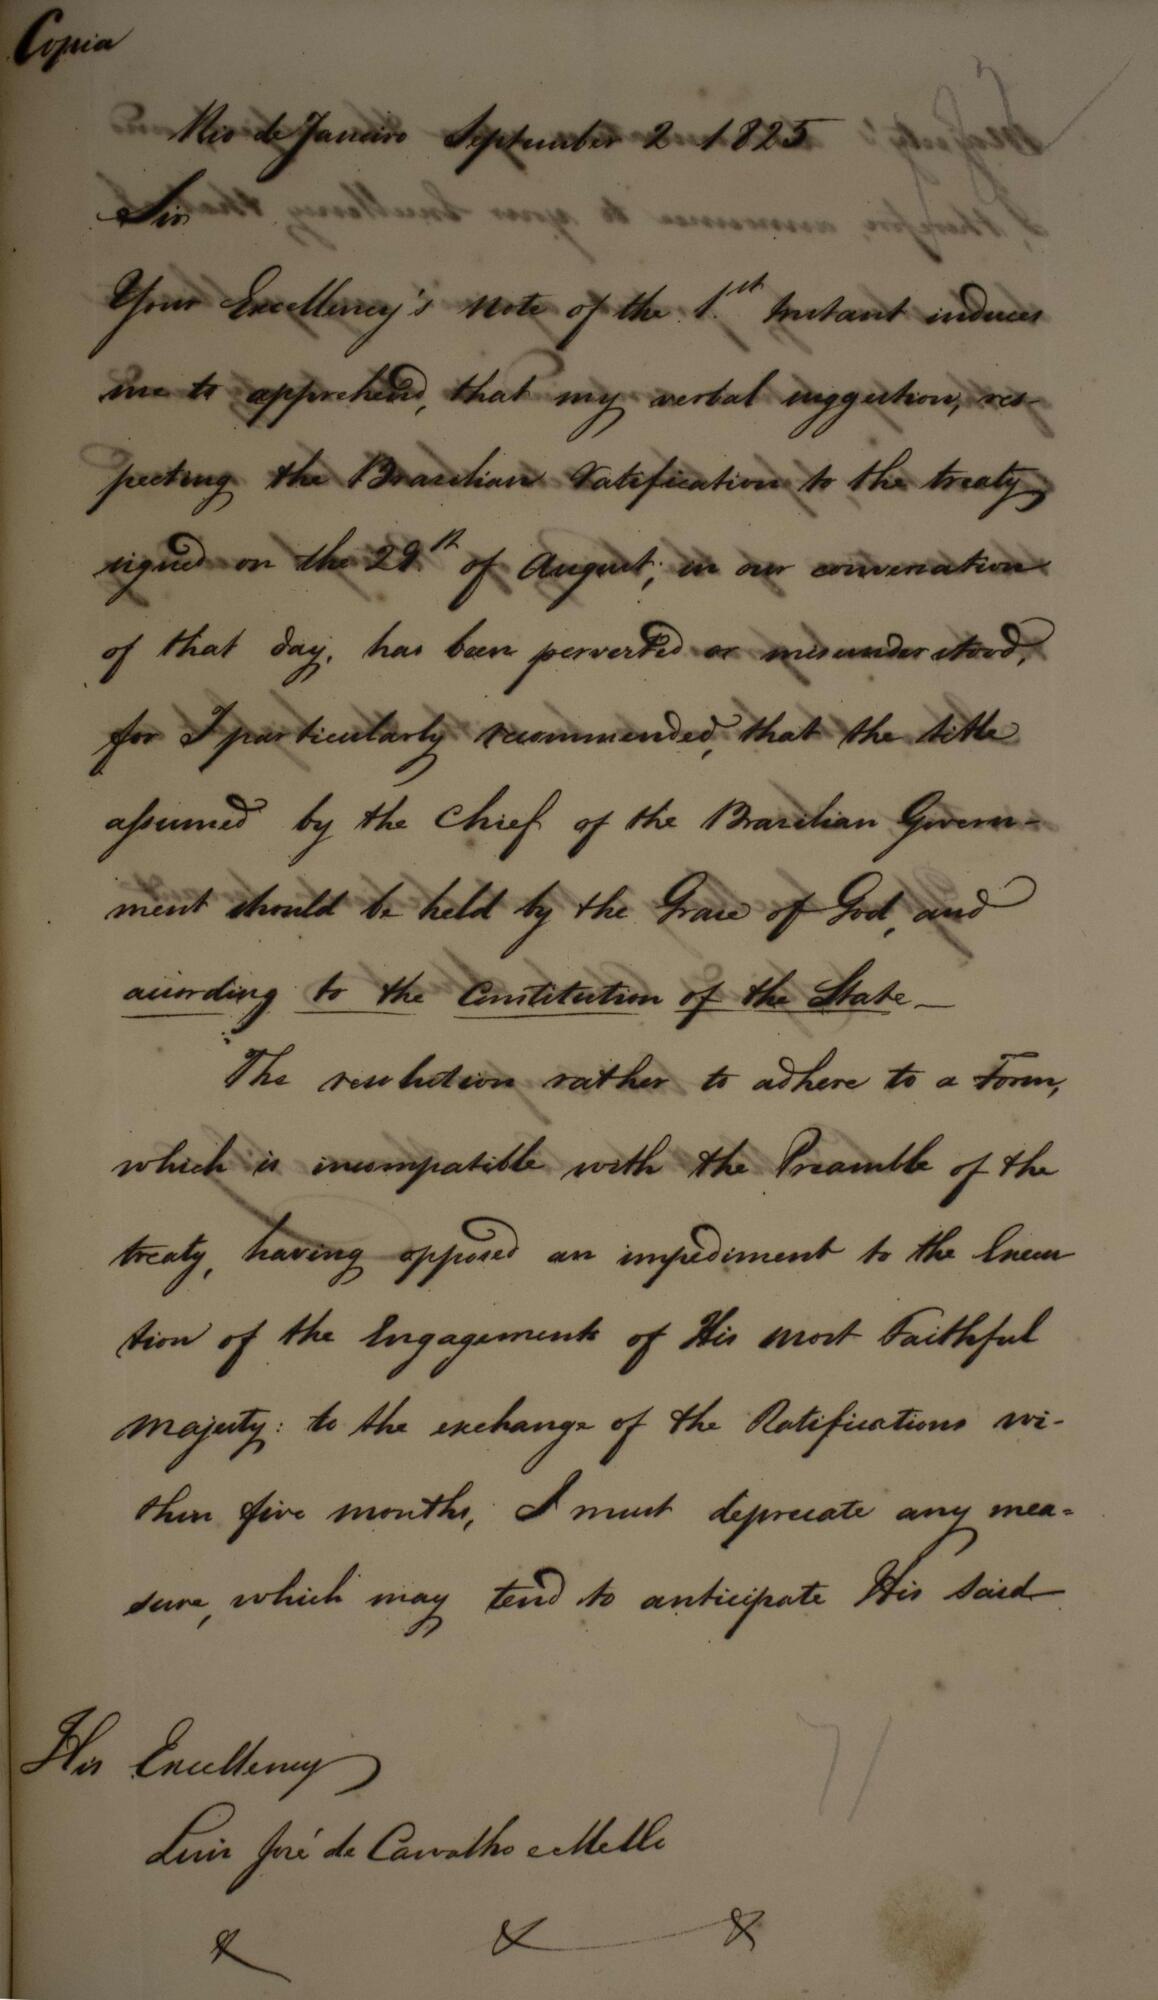 Copia
Rio de Janeiro September 2 1825
Sir
Your Excellency's note of the 1.st Instant induces
me to apprehend, that my verbal suggestion, res-
pecting the Brasilian ratification to the treaty
signed on the 29.th of August, in our conversation
of that day, has been perverted or misunderstood,
for I particularly recommended, that the title
assumed by the Chief of the Brasilian Govern-
ment should be held by the Grace of God, and
according to the Constitution of the State _
The resolution rather to adhere to a Form,
which is incompatible with the Preamble of the
treaty, having opposed an impediment to the Execu
tion of the Engagements of His most Faithful
Majesty: to the exchange of the Ratifications wi-
thin five months, I must deprecate any mea-
sure, which may tend to anticipate His said
His Excellency
Luis José de Carvalho e Mello
& & &